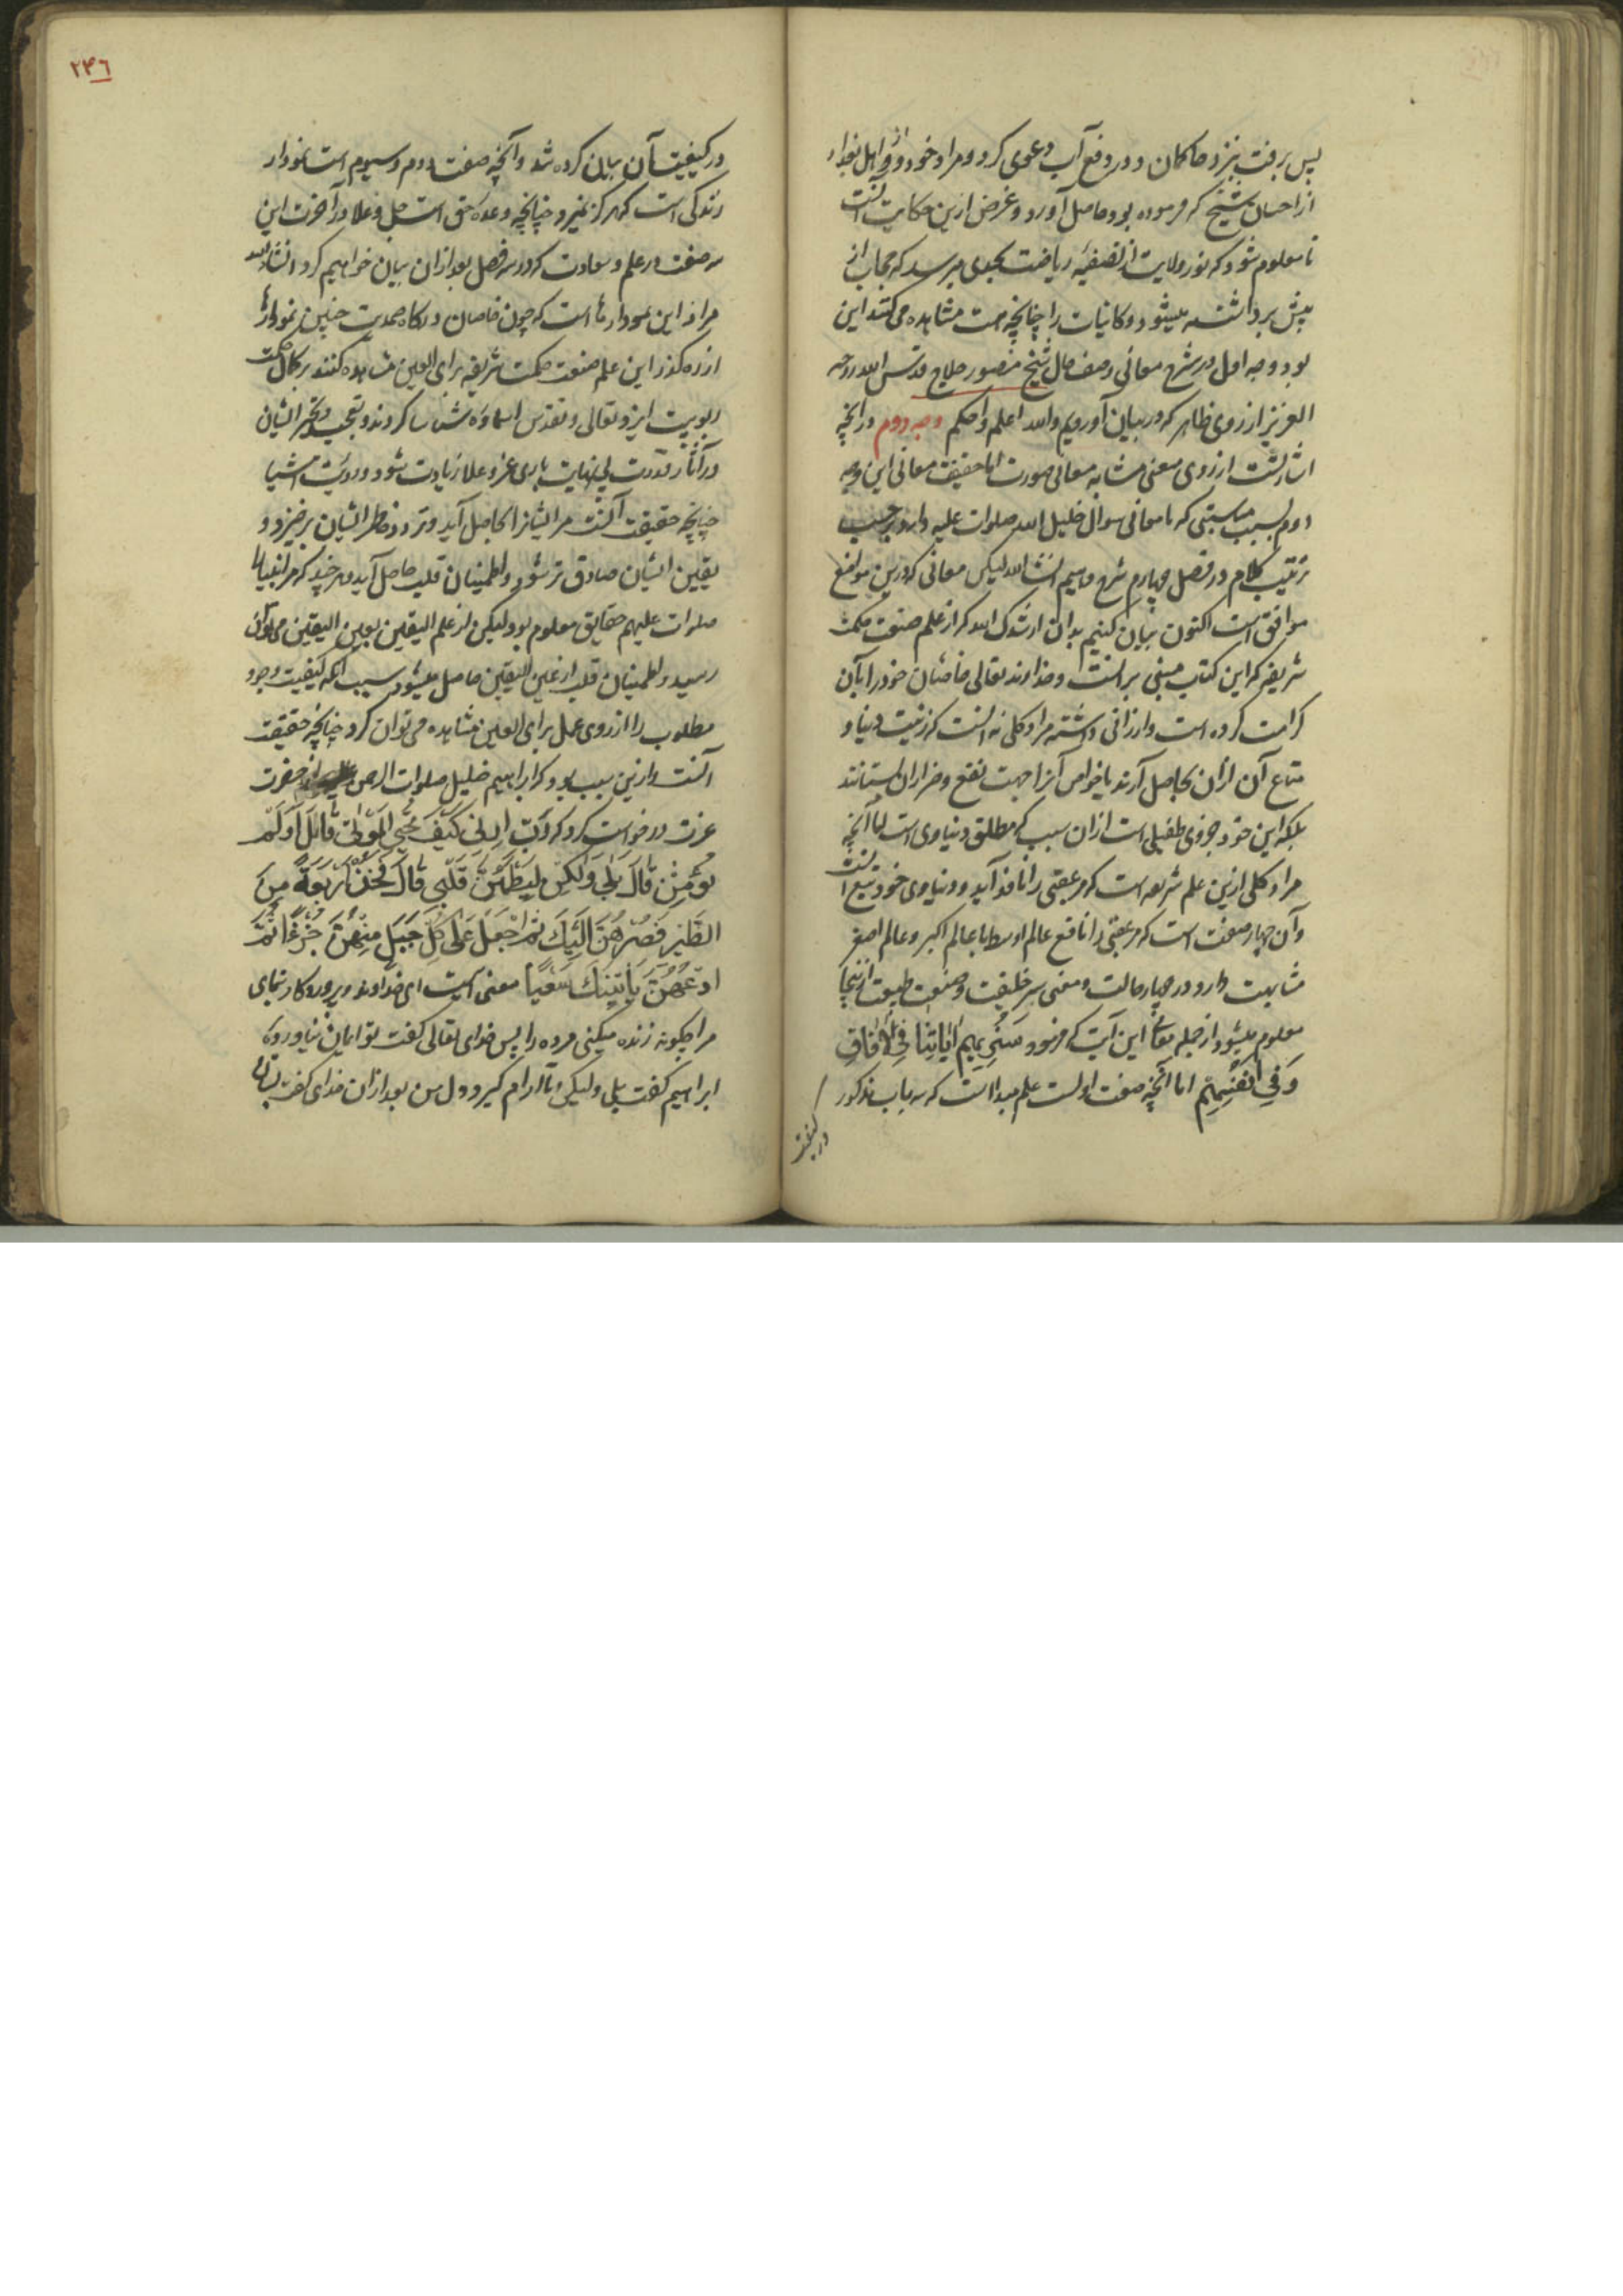 پس برفت بنزد حاکمان و در وقع آب دعوی کرد و مراد خود و اهل بغداد
از احسان شیخ که فرموده بود حاصل آورد و غرض ازین حکایت آنست
تا معلوم شود که نور ولایت از تصفیه ریاضت بحدی میرسد که حجاب از
پیش برداشته میشود و کاینات را چنانچه هست مشاهده می کنند این
بود وجه اول در شرح معانی وصف حال شیخ منصور حلاج قدس الله روحه
العزیز از روی ظاهر که در بیان آوردیم والله اعلم واحکم وجه دوم در انچه
از روی معنی مشابه معانی صورت اما حقیقت معانی این وجه
دوم بسبب مناسبتی که با معانی سوال خلیل الله صلوات علیه دارد بر حسب
ترتیب کلام در فصل چهارم شرح دهیم انشاالله لیکن معانی که درین مواضع
موافق است اکنون بیان کنیم بدان ارشدک الله که از علم صنعت حکمت
شریفه که این کتاب مبنی بر انست و خداوند تعالی خاصان خود را بآن
کرامت کرده است و ارزانی داشته مراد کلی نه انست که زینت دنیا و
متاع آن ازان بحاصل آرند یا خواص آنرا جهت نفع و ضر ازان بستانند
بلکه این خود جزوی طفیلی است ازان سبب که مطلق دنیاوی است اما آنچه
مراد کلی ازین علم شریعه است که مر عقبی را نافع آید و دنیاوی خود تبع آنست
وآن چهار صفت است که مر عقبی را نافع عالم اوسط با عالم اکبر و عالم اصغر
مشابهت دارد در چهار حالت و معنی سر خلیقت و صنعت طبیعت ازینجا
معلوم میشود از جمله معانی این آیت که فرمود سَنُرِیهِم اٰیَاتِنَا فِی الْاٰفَاقِ
وَفِی اَنْفُسِهِمْ اما آنچه صفت اولست علم مبدا است که سه باب مذکور
در کیفیت
۲۴٦
در کیفیت آن بیان کرده شد و آنچه صفت دوم و سیوم است نمودار
زندگی است که هرگز نمیرد چنانچه وعده حق است جل وعلا در آخرت این
سه صفت در علم و سعادت که در سه فصل بعد ازان بیان خواهیم کرد انشاالله
مراد از این نمودارها است که چون خاصان درگاه صمدیت چنین نمودارها
از ره گذر این علم صنعت حکمت شریفه برای العین مشاهده کنند بر کمال حکمت
ربوبیت ایزد تعالی و تقدس اسماوه شناسا گردند و تعجب و تحیر ایشان
در آثار قدرت بی نهایت باری عز و علا زیادت شود و رویت اشیا
چنانچه حقیقت آنست مر ایشانرا بحاصل آید و تردد خاطر ایشان برخیزد و
یقین ایشان صادق تر شود و اطمینان قلب حاصل آید هر چند که مر انبیا را
صلوات علیهم حقایق معلوم بود ولیکن از علم الیقین بعین الیقین می توان
رسید و اطمینان قلب از عین الیقین حاصل میشود سبب آنکه کیفیت وجود
مطلوب را از روی عمل برای العین مشاهده می توان کرد چنانچه حقیقت
آنست و ازین سبب بود که ابراهیم خلیل صلوات الرحمن علیه از حضرت
عزت درخواست کرد که رَبِّ اَرِنِی کَیْفَ تُحْیِی الْمَوْتٰی قَالَ اَوَلَمْ
تُؤْمِنْ قَالَ بَلٰی وَلٰکِنْ لِیَطْمَئِنَّ قَلْبِی قَالَ فَخُذْ اَرْبَعَةً مِنَ
الطَّیْرِ فَصُرْهُنَّ اِلَیْکَ ثُمَّ اجْعَلْ عَلٰی کُلِّ جَبَلٍ مِنْهُنَّ جُزْءًا ثُمَّ
ادْعُهُنَّ یَأْتِینَکَ سَعْیًا معنی آیت ای خداوند و پروردگار بنمای
مرا چگونه زنده میکنی مرده را پس خدای تعالی گفت تو ایمان نیاورده
ابراهیم گفت بلی ولیکن تا آرام گیرد دل من بعد ازان خدای گفت بستان